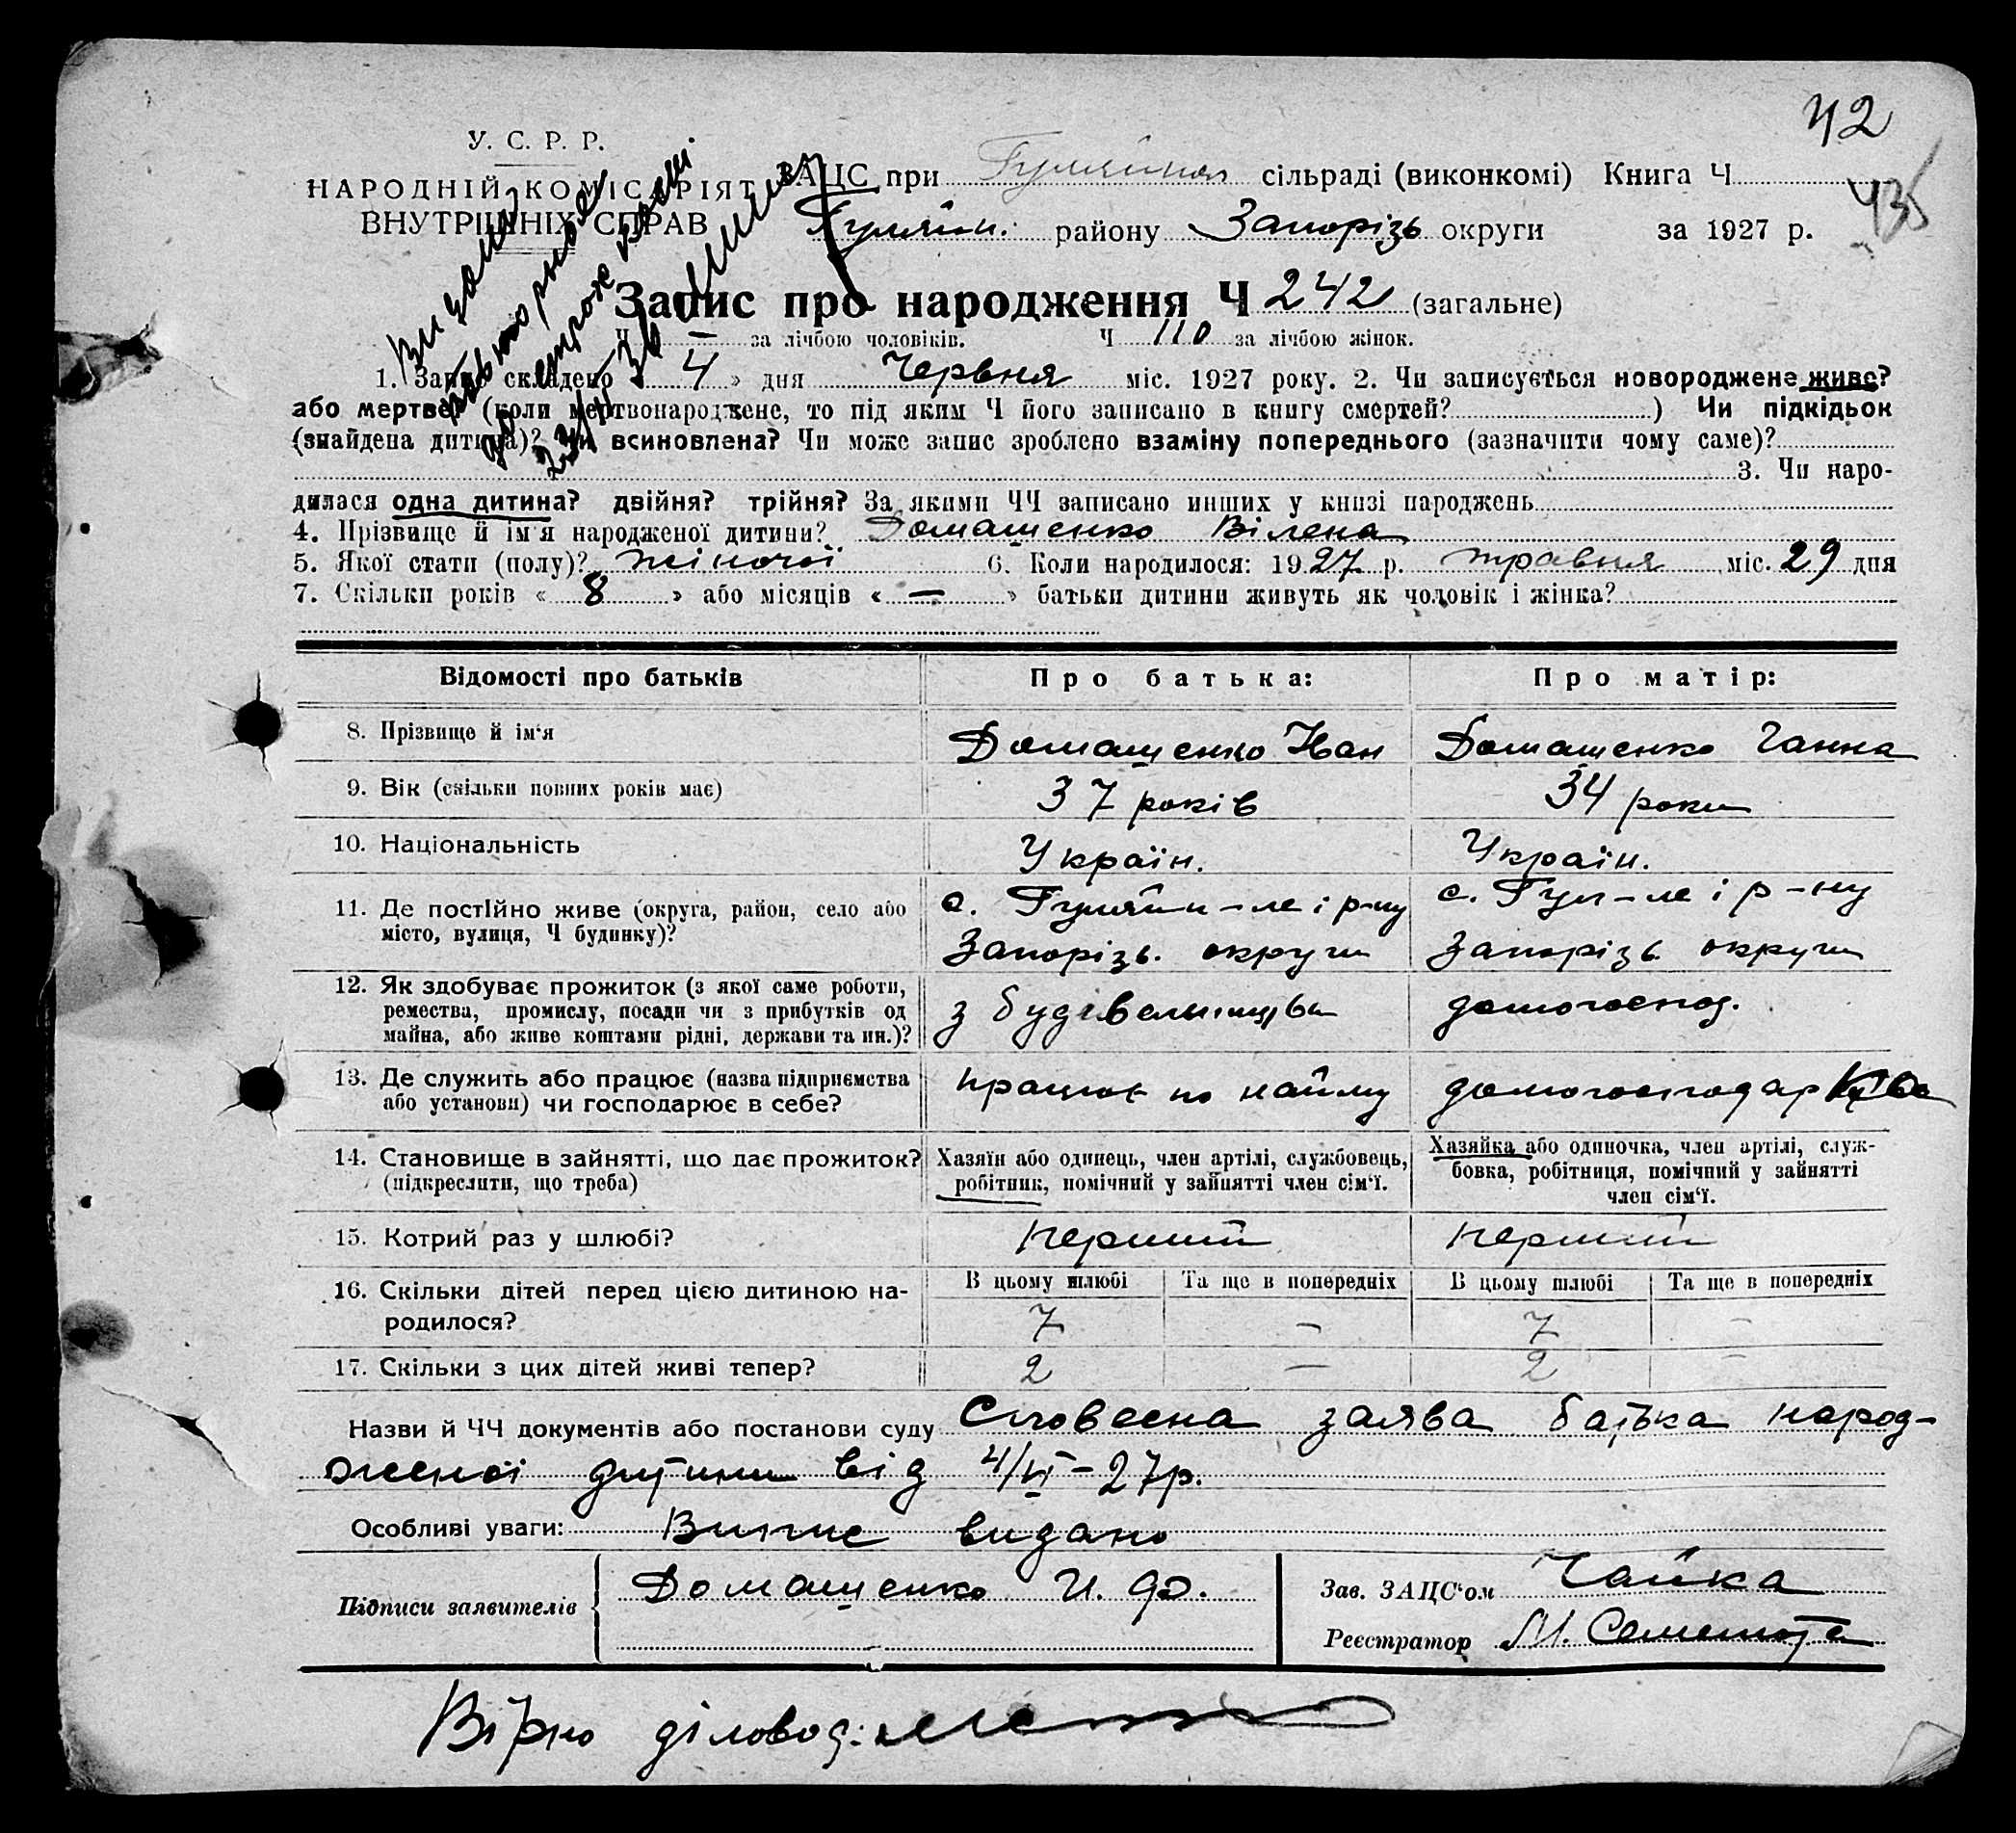 42
У. С. Р. Р.
НАРОДНІЙ КОМІСАРІЯТ
ВНУТРІШНІХ СПРАВ
ЗАЦС при сільраді (виконкомі) Книга Ч
435
Гуляйп. району Запорізь округи за 1927 р.
Запис про народження Ч 242 (загальне)
Ч — за лічбою чоловіків. Ч 110 за лічбою жінок.
1. Запис складено 4 » дня Червня міс. 1927 року. 2. Чи записується новороджене живе?
або мертве? (коли мертвонароджене, то під яким Ч його записано в книгу смертей? ) Чи підкідьок
(знайдена дитина)? Чи всиновлена? Чи може запис зроблено взаміну попереднього (зазначити чому саме)?
3. Чи наро-
дилася одна дитина? двійня? трійня? За якими ЧЧ записано инших у книзі народжень
4. Прізвище й ім'я народженої дитини? Домашенко Вілена
5. Якої стати (полу)? жіночої 6. Коли народилося: 1927 р. травня міс. 29 дня
7. Скільки років « 8 » або місяців « — » батьки дитини живуть як чоловік і жінка?
Відомості про батьків Про батька: Про матір:
8. Прізвище й ім'я Домашенко Іван Домашенко Ганна
9. Вік (скільки повних років має) 37 років 34 роки
10. Національність Україн. Україн.
11. Де постійно живе (округа, район, село або місто, вулиця, Ч будинку)?
с. Гуляйп-ле і р-ну Запорізь. округи
с. Гул-ле і р-ну Запорізь округи
12. Як здобуває прожиток (з якої саме роботи,
ремества, промислу, посади чи з прибутків од
майна, або живе коштами рідні, держави та ин.)?
з будівельництва домогоспод.
13. Де служить або працює (назва підприємства
або установи) чи господарює в себе?
працює по найму домогосподарка
14. Становище в зайнятті, що дає прожиток?
(підкреслити, що треба)
Хазяїн або одинець, член артілі, службовець,
робітник, помічний у зайнятті член сім'ї.
Хазяйка або одиночка, член артілі, служ-
бовка, робітниця, помічний у зайнятті
член сім'ї.
15. Котрий раз у шлюбі? перший перший
16. Скільки дітей перед цією дитиною на-
родилося?
В цьому шлюбі Та ще в попередніх В цьому шлюбі Та ще в попередніх
7 — 7 —
17. Скільки з цих дітей живі тепер? 2 — 2 —
Назви й ЧЧ документів або постанови суду Словесна заява батька народ-
женої дитини від 4/VI-27р.
Особливі уваги: Випис видано
Підписи заявителів Домашенко И. Ф.
Зав. ЗАЦС'ом Чайка
Реєстратор
Вірно діловод: